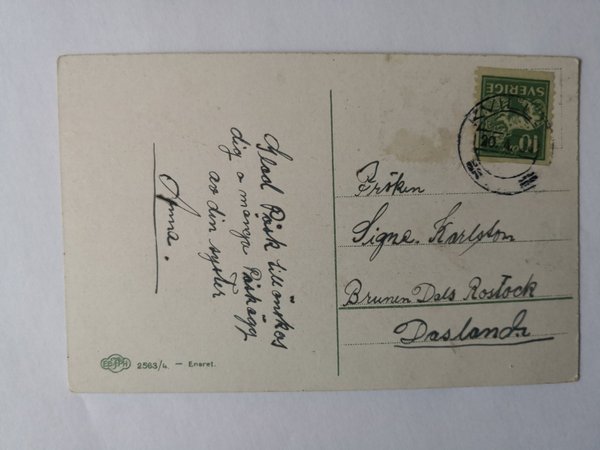 Glad Påsk tillönskas
dig o många Påskägg
av din syster
Anna.
SVERIGE
10
Fröken
Signe. Karlston
Brunen Dals Rostock
Dasland.
2563/4. — Eneret.